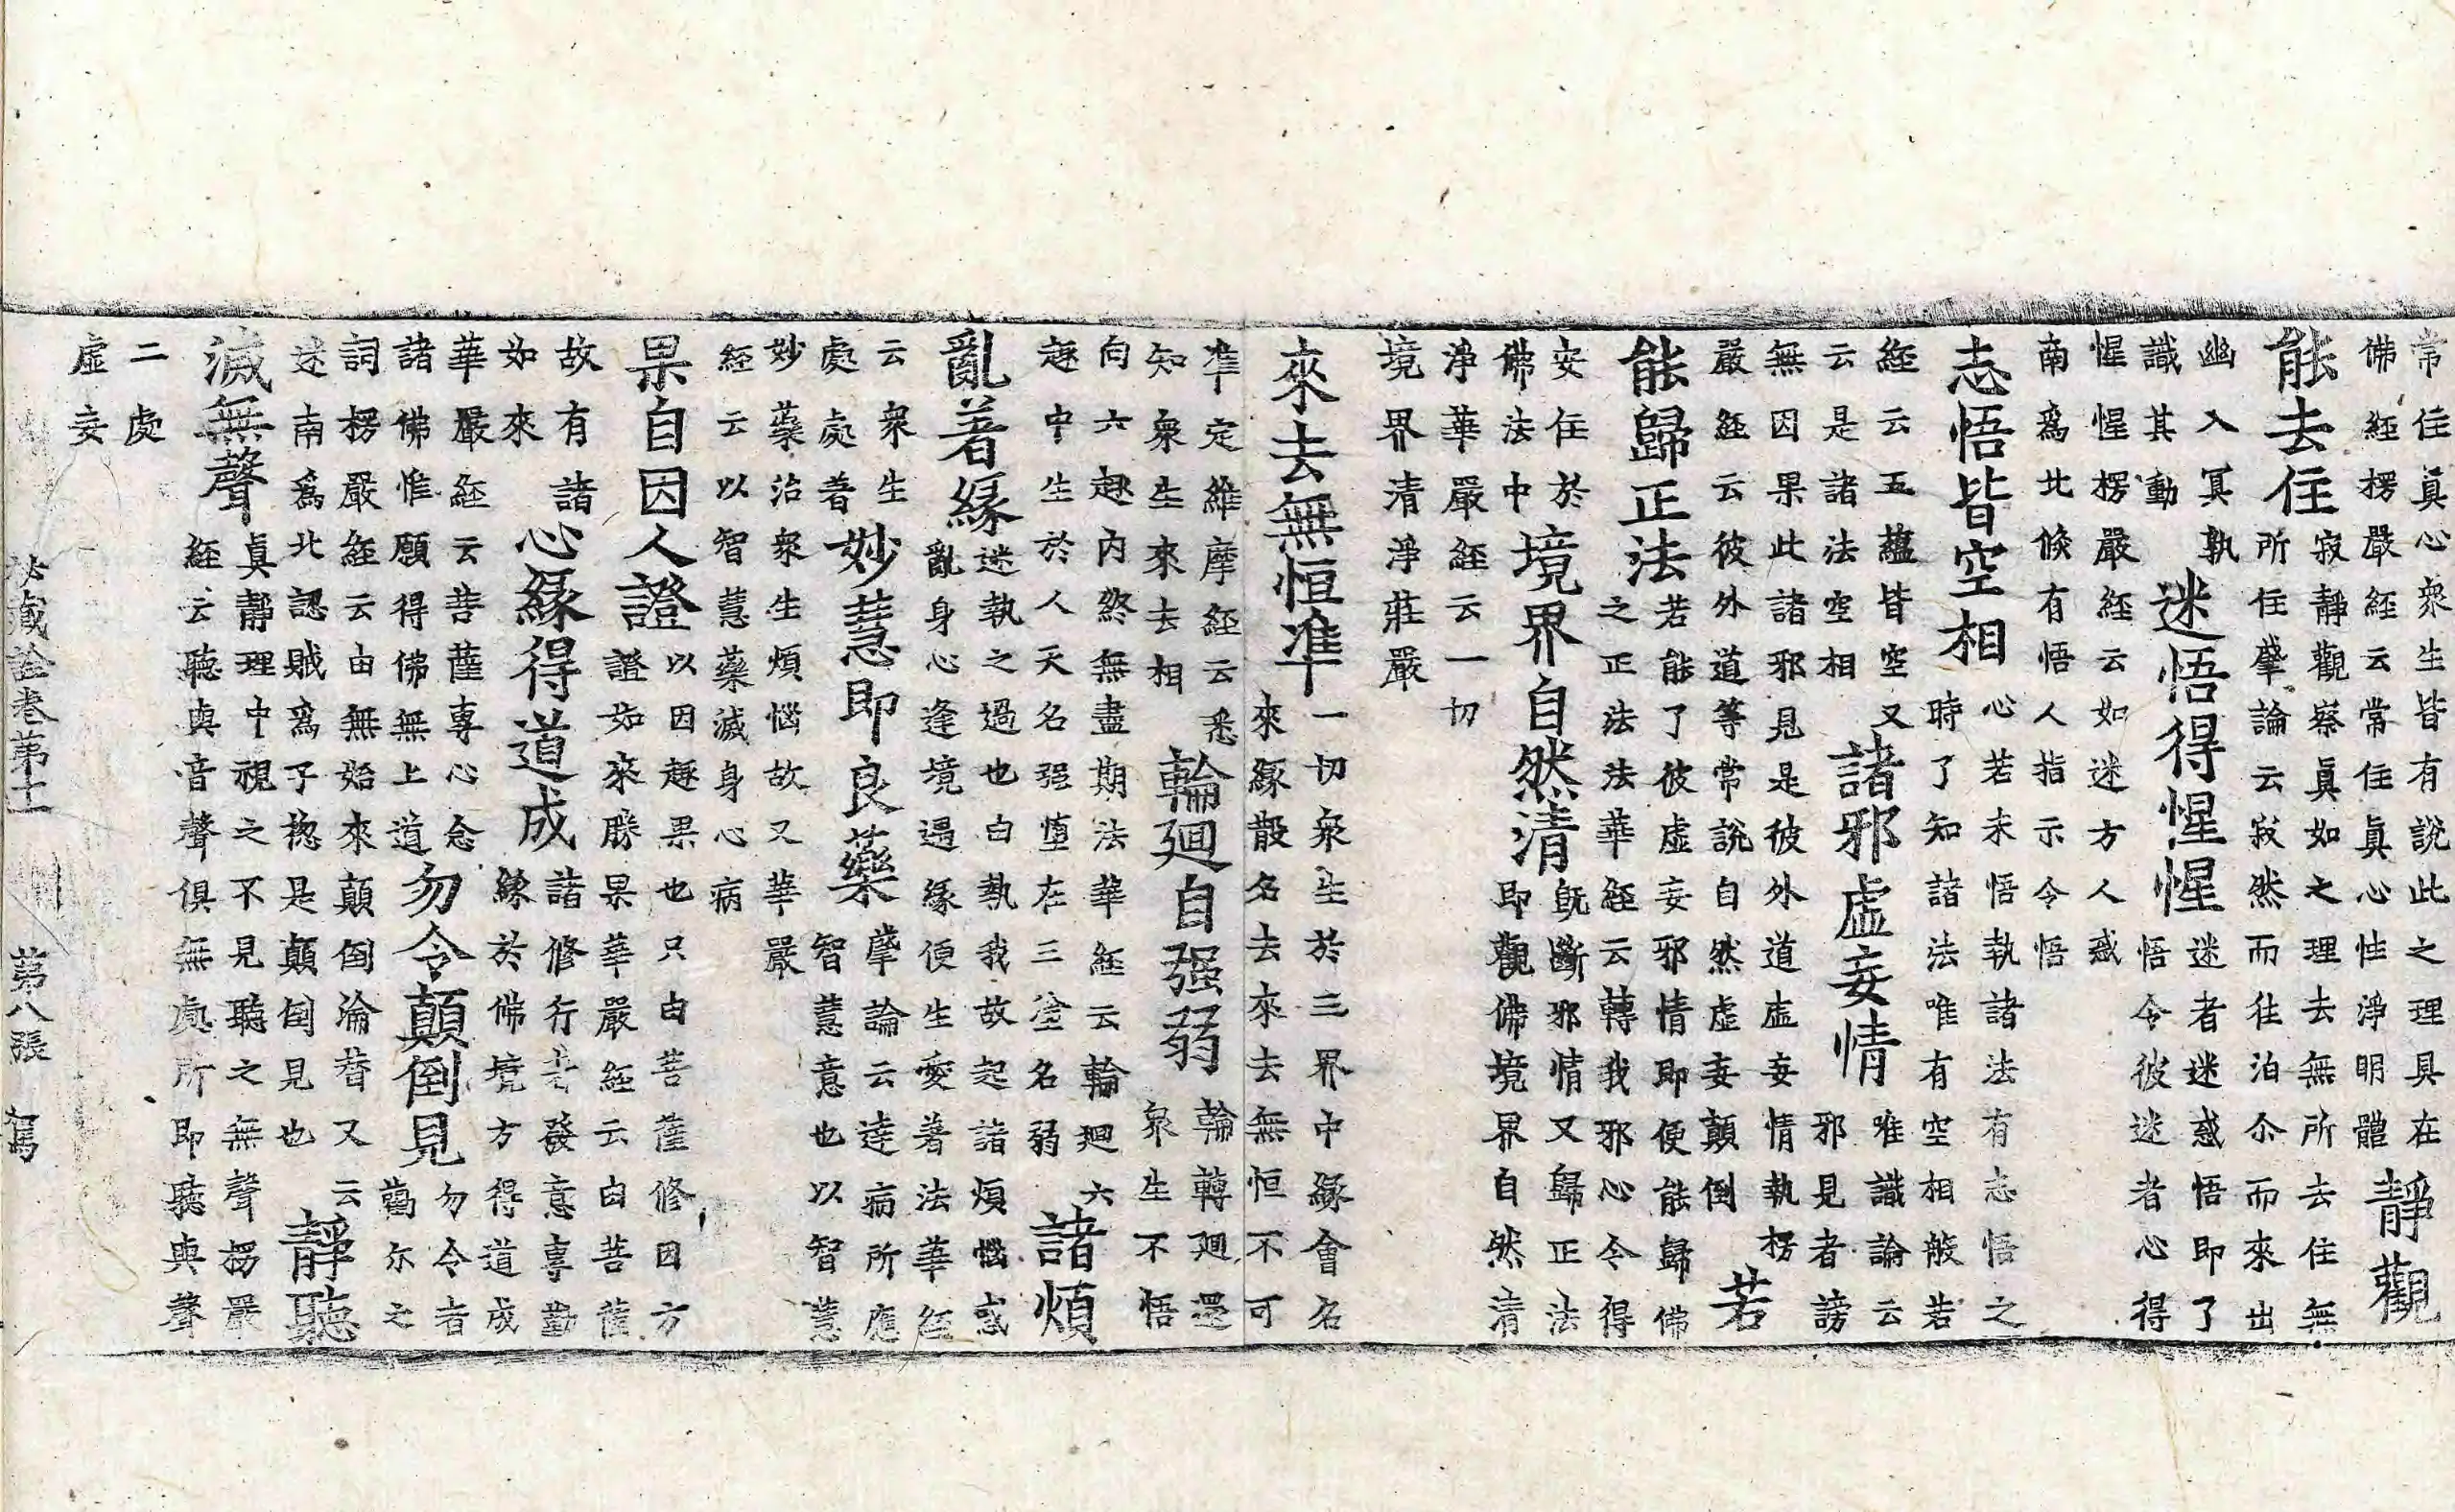 常住真心衆生皆有說此之理具在
佛經楞嚴經云常住真心性淨明體
靜觀
能去住
寂靜觀察真如之理去無所去住無
所住肇論云寂然而往泊尒而來出
幽入冥孰
識其動
迷悟得惺惺
迷者迷惑悟即了
悟令彼迷者心得
惺惺楞嚴經云如迷方人惑
南為北倐有悟人指示令悟
志悟皆空相
心若未悟執諸法有志悟之
時了知諸法唯有空相般若
經云五蘊皆空又
云是諸法空相
諸邪虛妄情
唯識論云
邪見者謗
無因果此諸邪見是彼外道虛妄情執楞
嚴經云彼外道等常說自然虛妄顛倒
若
能歸正法
若能了彼虛妄邪情即便能歸佛
之正法法華經云轉我邪心令得
安住於
佛法中
境界自然清
既斷邪情又歸正法
即觀佛境界自然清
淨華嚴經云一切
境界清淨莊嚴
來去無恒准
一切衆生於三界中緣會名
來緣散名去來去無恒不可
准定維摩經云悉
知衆生來去相
輪廻自强弱
輪轉廻還
衆生不悟
向六趣內終無盡期法華經云輪廻六
趣中生於人天名强墮在三塗名弱
諸煩
亂著緣
迷執之過也由執我故起諸煩惱惑
亂身心逢境遇緣便生愛著法華經
云衆生
處處著
妙慧即良藥
肇論云達病所應
智慧意也以智慧
妙藥治衆生煩惱故又華嚴
經云以智慧藥滅身心病
果自因人證
以因趣果也只由菩薩修因方
證如來勝果華嚴經云由菩薩
故有諸
如來
心緣得道成
諸修行者發意專勤
緣於佛境方得道成
華嚴經云菩薩專心念
諸佛惟願得佛無上道
勿令顛倒見
勿令者
勸尒之
詞楞嚴經云由無始來顛倒淪替又云
迷南為北認賊為子揔是顛倒見也
靜聽
滅無聲
真靜理中視之不見聽之無聲楞嚴
經云聽與音聲俱無處所即聽與聲
二處
虛妄
秘藏詮卷第十一 第八張 寫